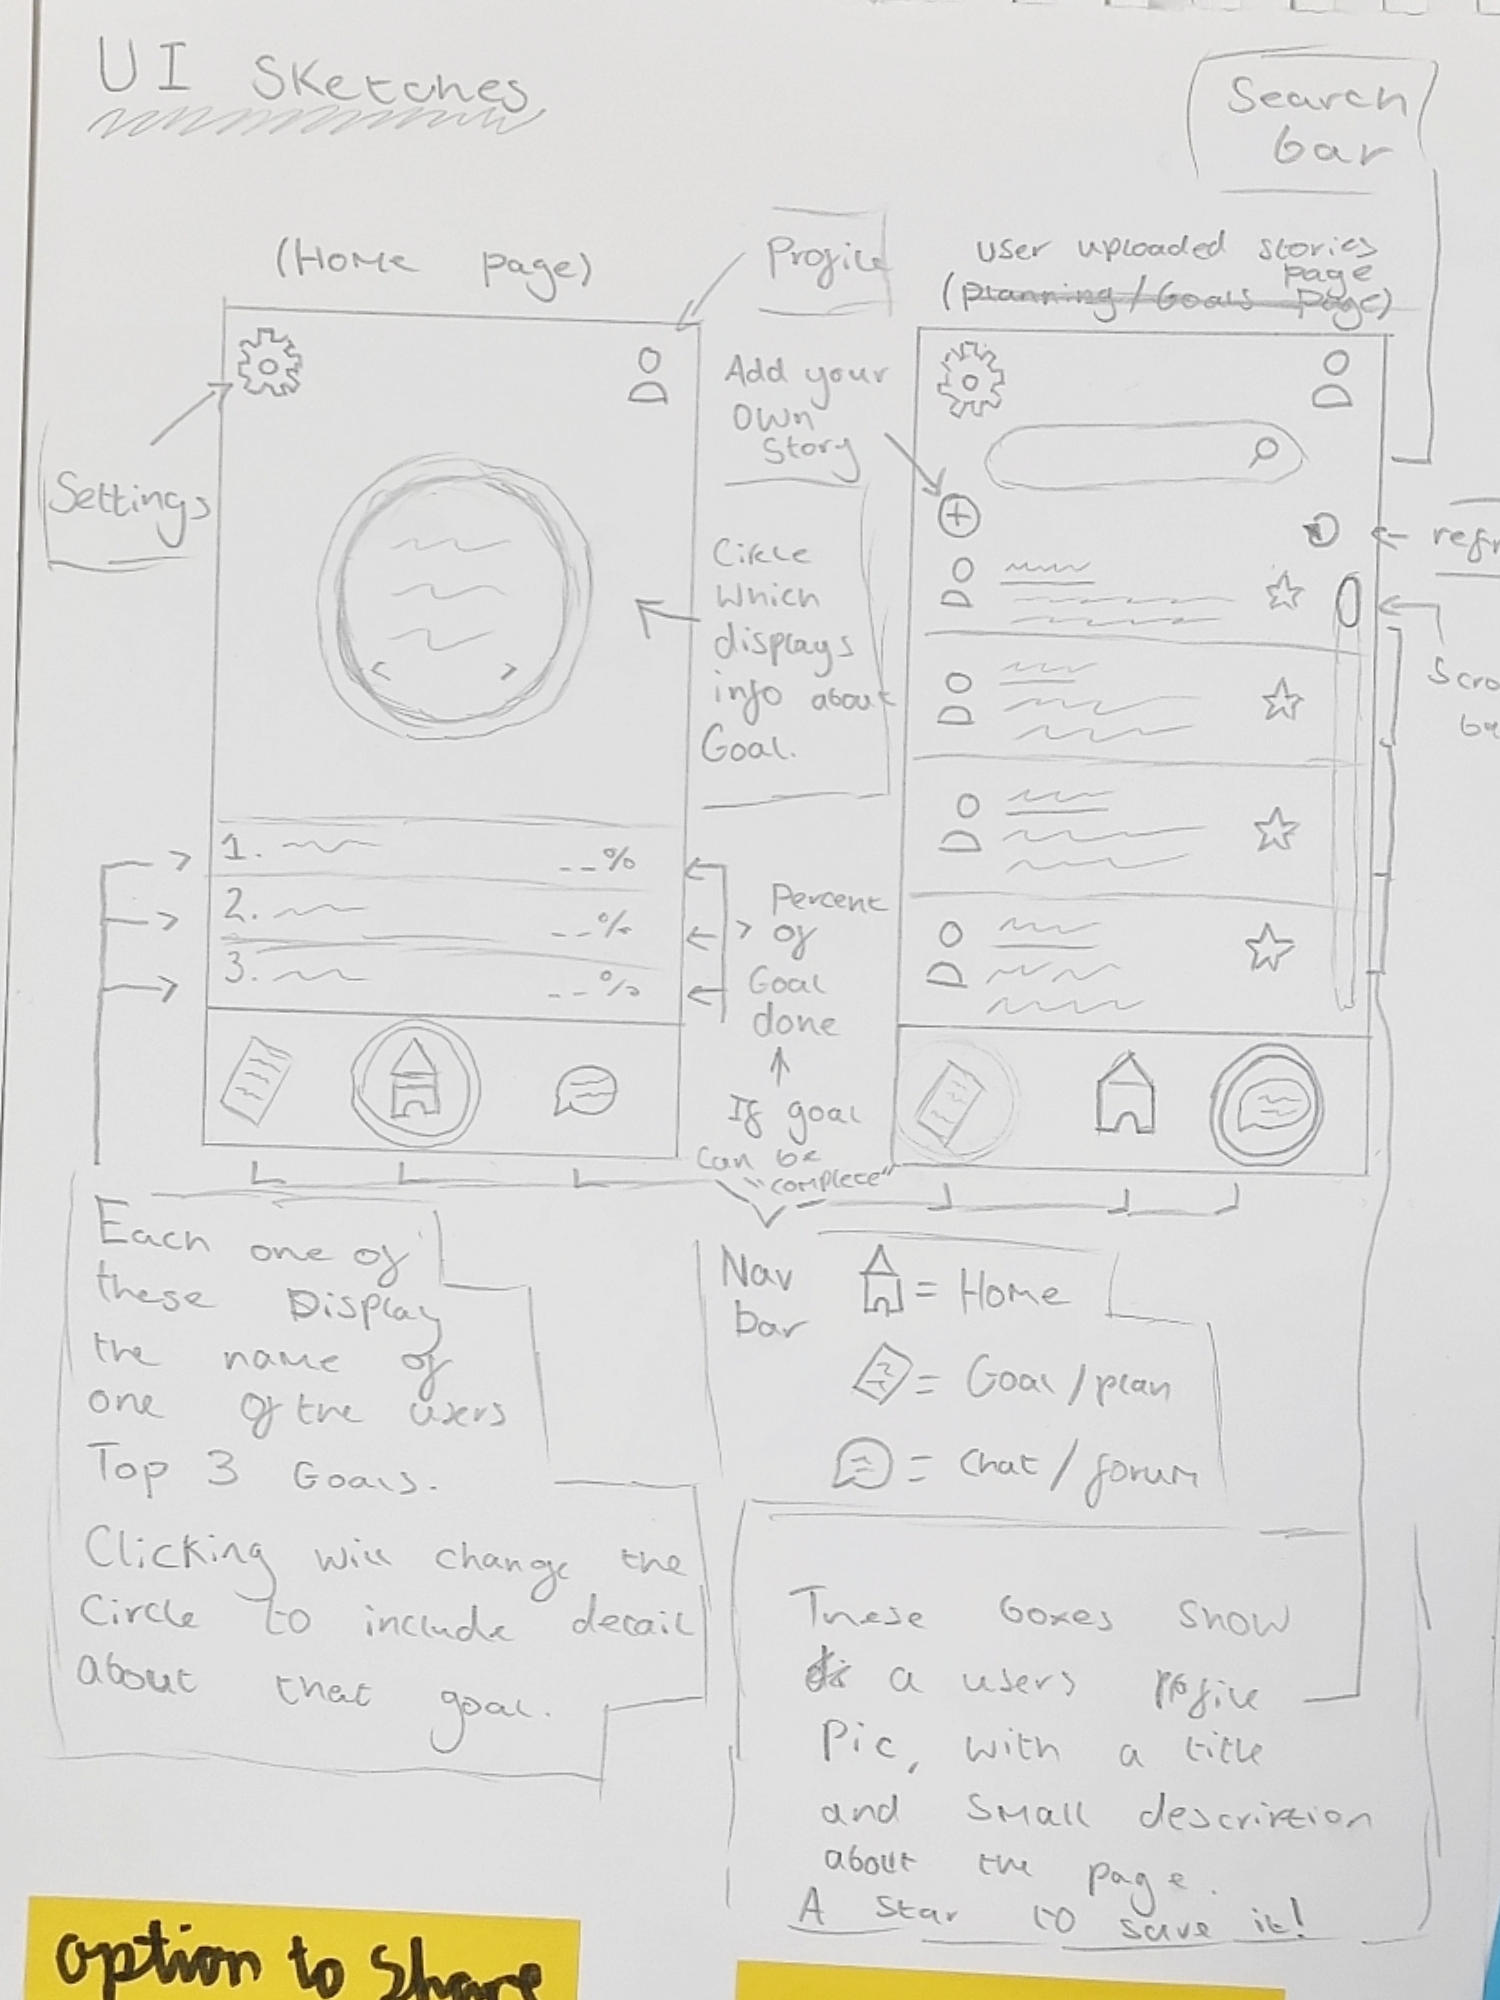 UI Sketches
Search
bar
(Home page)
Profile
User uploaded stories
page
(planning/Goals page)
Settings
Add your
Own
Story
Circle
Which
displays
info about
Goal.
refr
Scro
ba
1. __%
2. __%
3. __%
Percent
of
Goal
done
If goal
can be
"complete"
Each one of
these Display
the name of
one of the users
Top 3 Goals.
Clicking will change the
Circle to include detail
about that goal.
Nav
bar
= Home
= Goal/plan
= Chat/forum
These boxes show
a users
Pic, with a title
and small description
about the page.
A star to save it!
option to Share